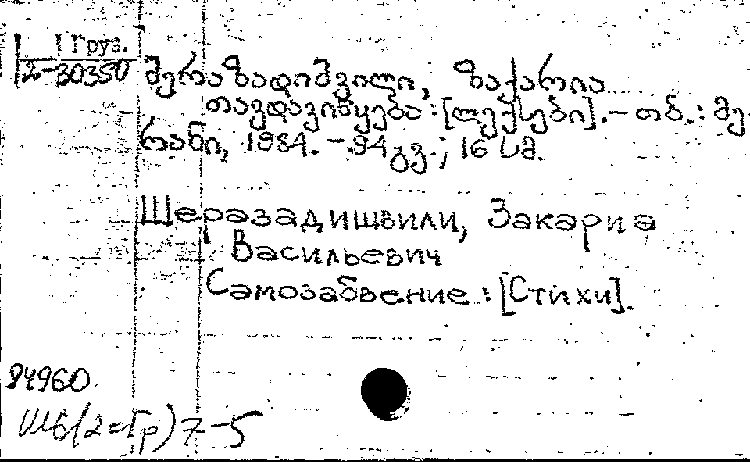 1 Груз.
2-30350
შერაზადიშვილი, ზაქარია
თავდავიწყება : [ლექსები]. – თბ. : მე-
რანი, 1984. – 94 გვ. ; 16 სმ.
Шеразадишвили, Закариа
Васильевич
Самозабвение : [Стихи].
84960
Шб(2=Гр)7-5